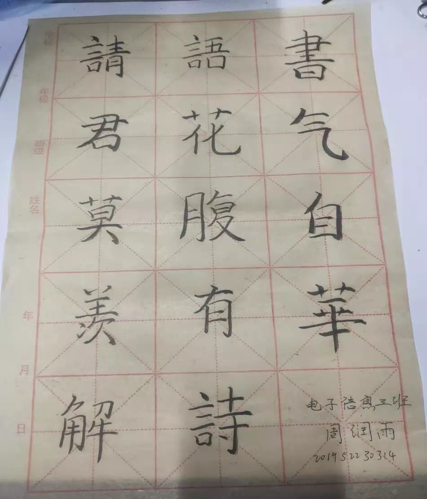 請君莫羡解
語花腹有詩
書气自華
电子信息
周润雨
201952230314
姓名
年
月
日